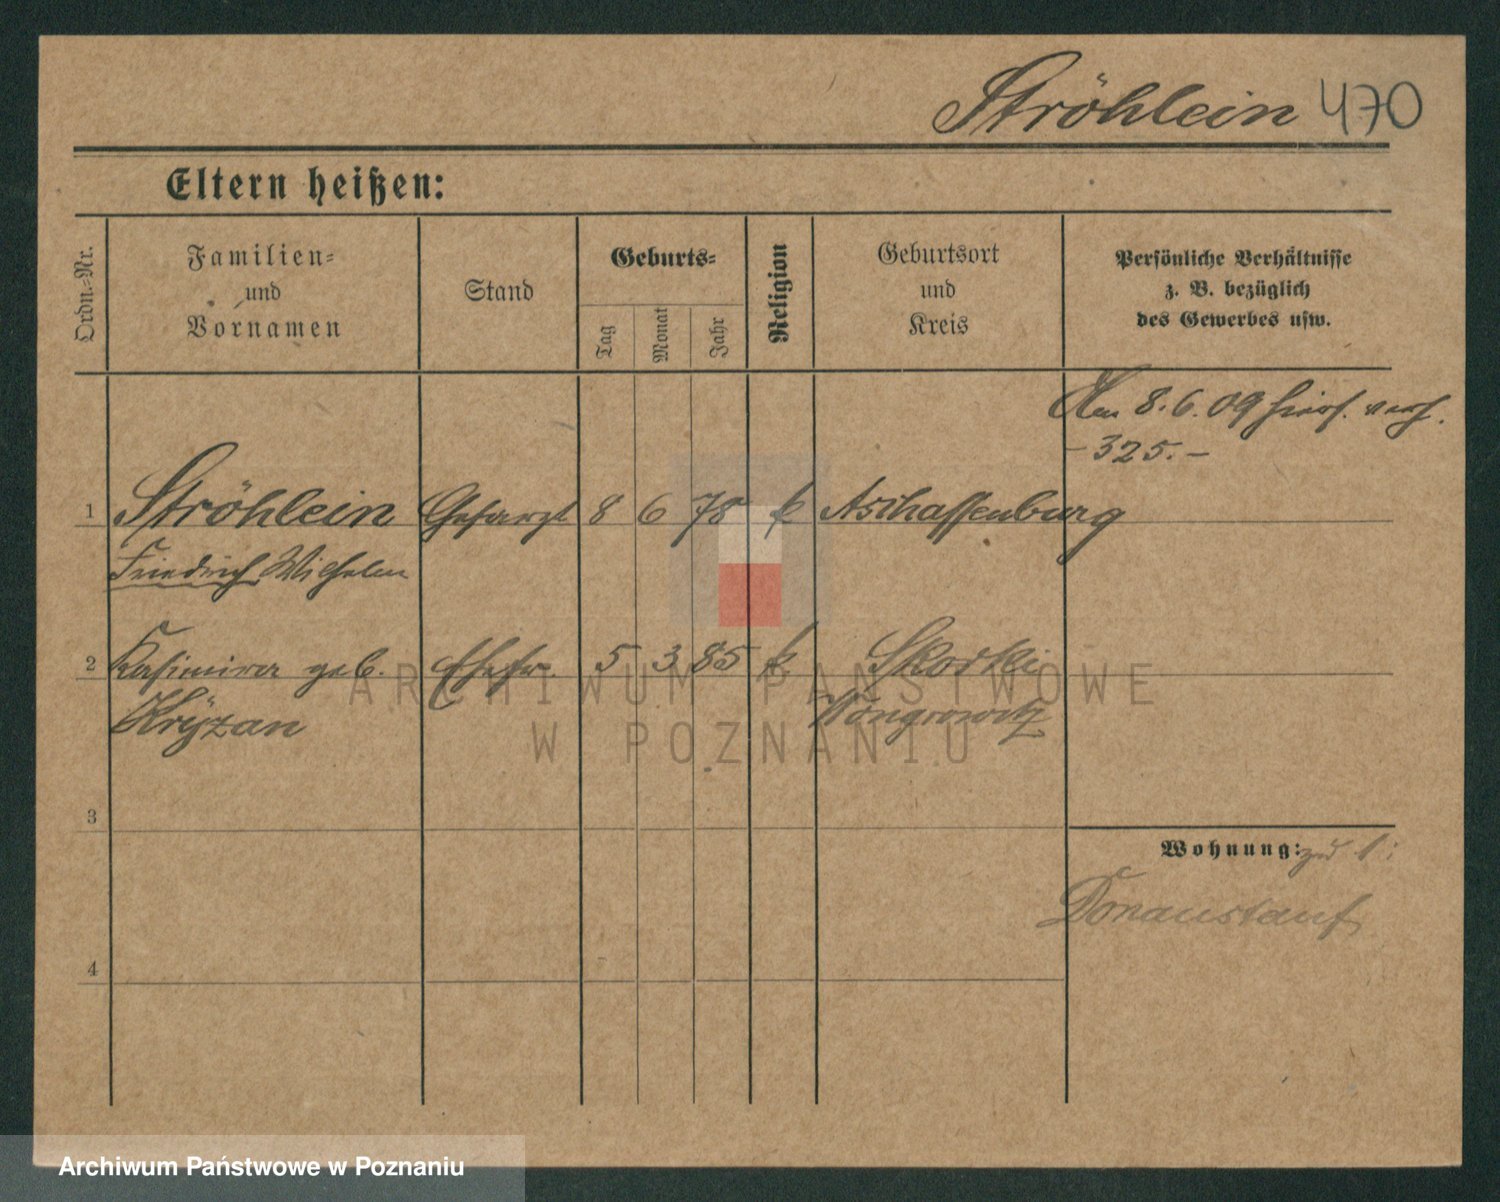 Ströhlein 470
Eltern heißen:
Ordn.-Nr.
Familien-
und
Vornamen
Stand
Geburts-
Tag
Monat
Jahr
Religion
Geburtsort
und
Kreis
Persönliche Verhältnisse
z. B. bezüglich
des Gewerbes usw.
8.6.09
-325.-
1 Ströhlein 8 6 78 k Aschaffenburg
Friedrich Wilhelm
2 Kasimira geb. Ehefr. 5 3 85 k.
Kryzan Wongrowitz
3
4
Wohnung: zu 1:
Donaustauf
ARCHIWUM PAŃSTWOWE
W POZNANIU
Archiwum Państwowe w Poznaniu